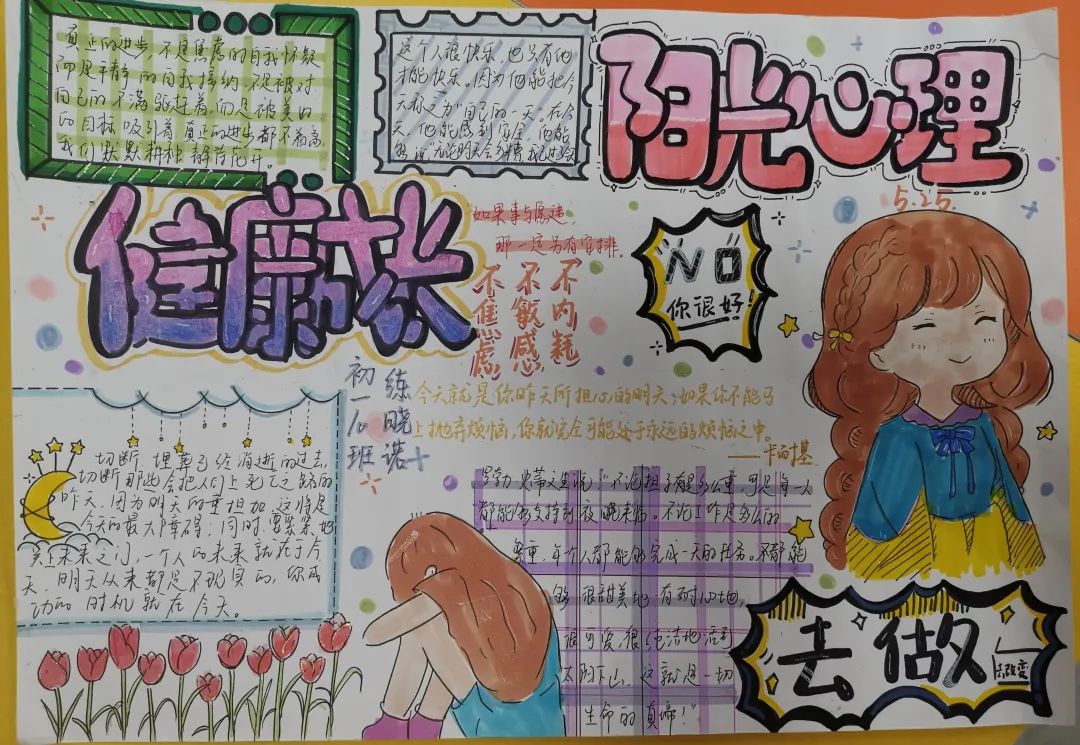 真正的进步 不是焦虑的自我怀疑
而是平静的自我接纳 不是被对
自己的不满驱赶着,而是被美好
的目标吸引着 真正的进步都不着急
我们默默耕种 静待花开。
这个人很快乐,也只有他
才能快乐。因为他能把今
天称之为"自己的一天。在今
天,他能感到安全,他能
够说:"无论明天会多糟 我已过今
阳光心理
5.25.
健康成长
如果事与愿违,
那一定另有安排。
不内耗
不敏感
不焦虑
"NO"
你很好!
初一10班
练晓诺
今天就是你昨天所担心的明天;如果你不能马
上抛弃烦恼,你就完全可能处于永远的烦恼之中。
——卡内基
切断、埋葬已经消逝的过去,
切断那些会把人们上死亡之路的
昨天,因为明天的重担加 这将是
今天的最大障碍,同时,要紧紧地
关上未来之门,一个人的未来就在于今
天,明天从来都是不现实的,你成
功的时机就在今天。
罗勃·史蒂文生说:"不论担子有多么重,可是每一人
都能够支持到夜晚来临。不论工作是多么的
繁重,每个人都能够完成一天的任务。不都能
够 很甜美地 有耐心地,
很可爱,很纯洁地活到
太阳下山,这就是一切
生命的真谛!"
去做
去改变